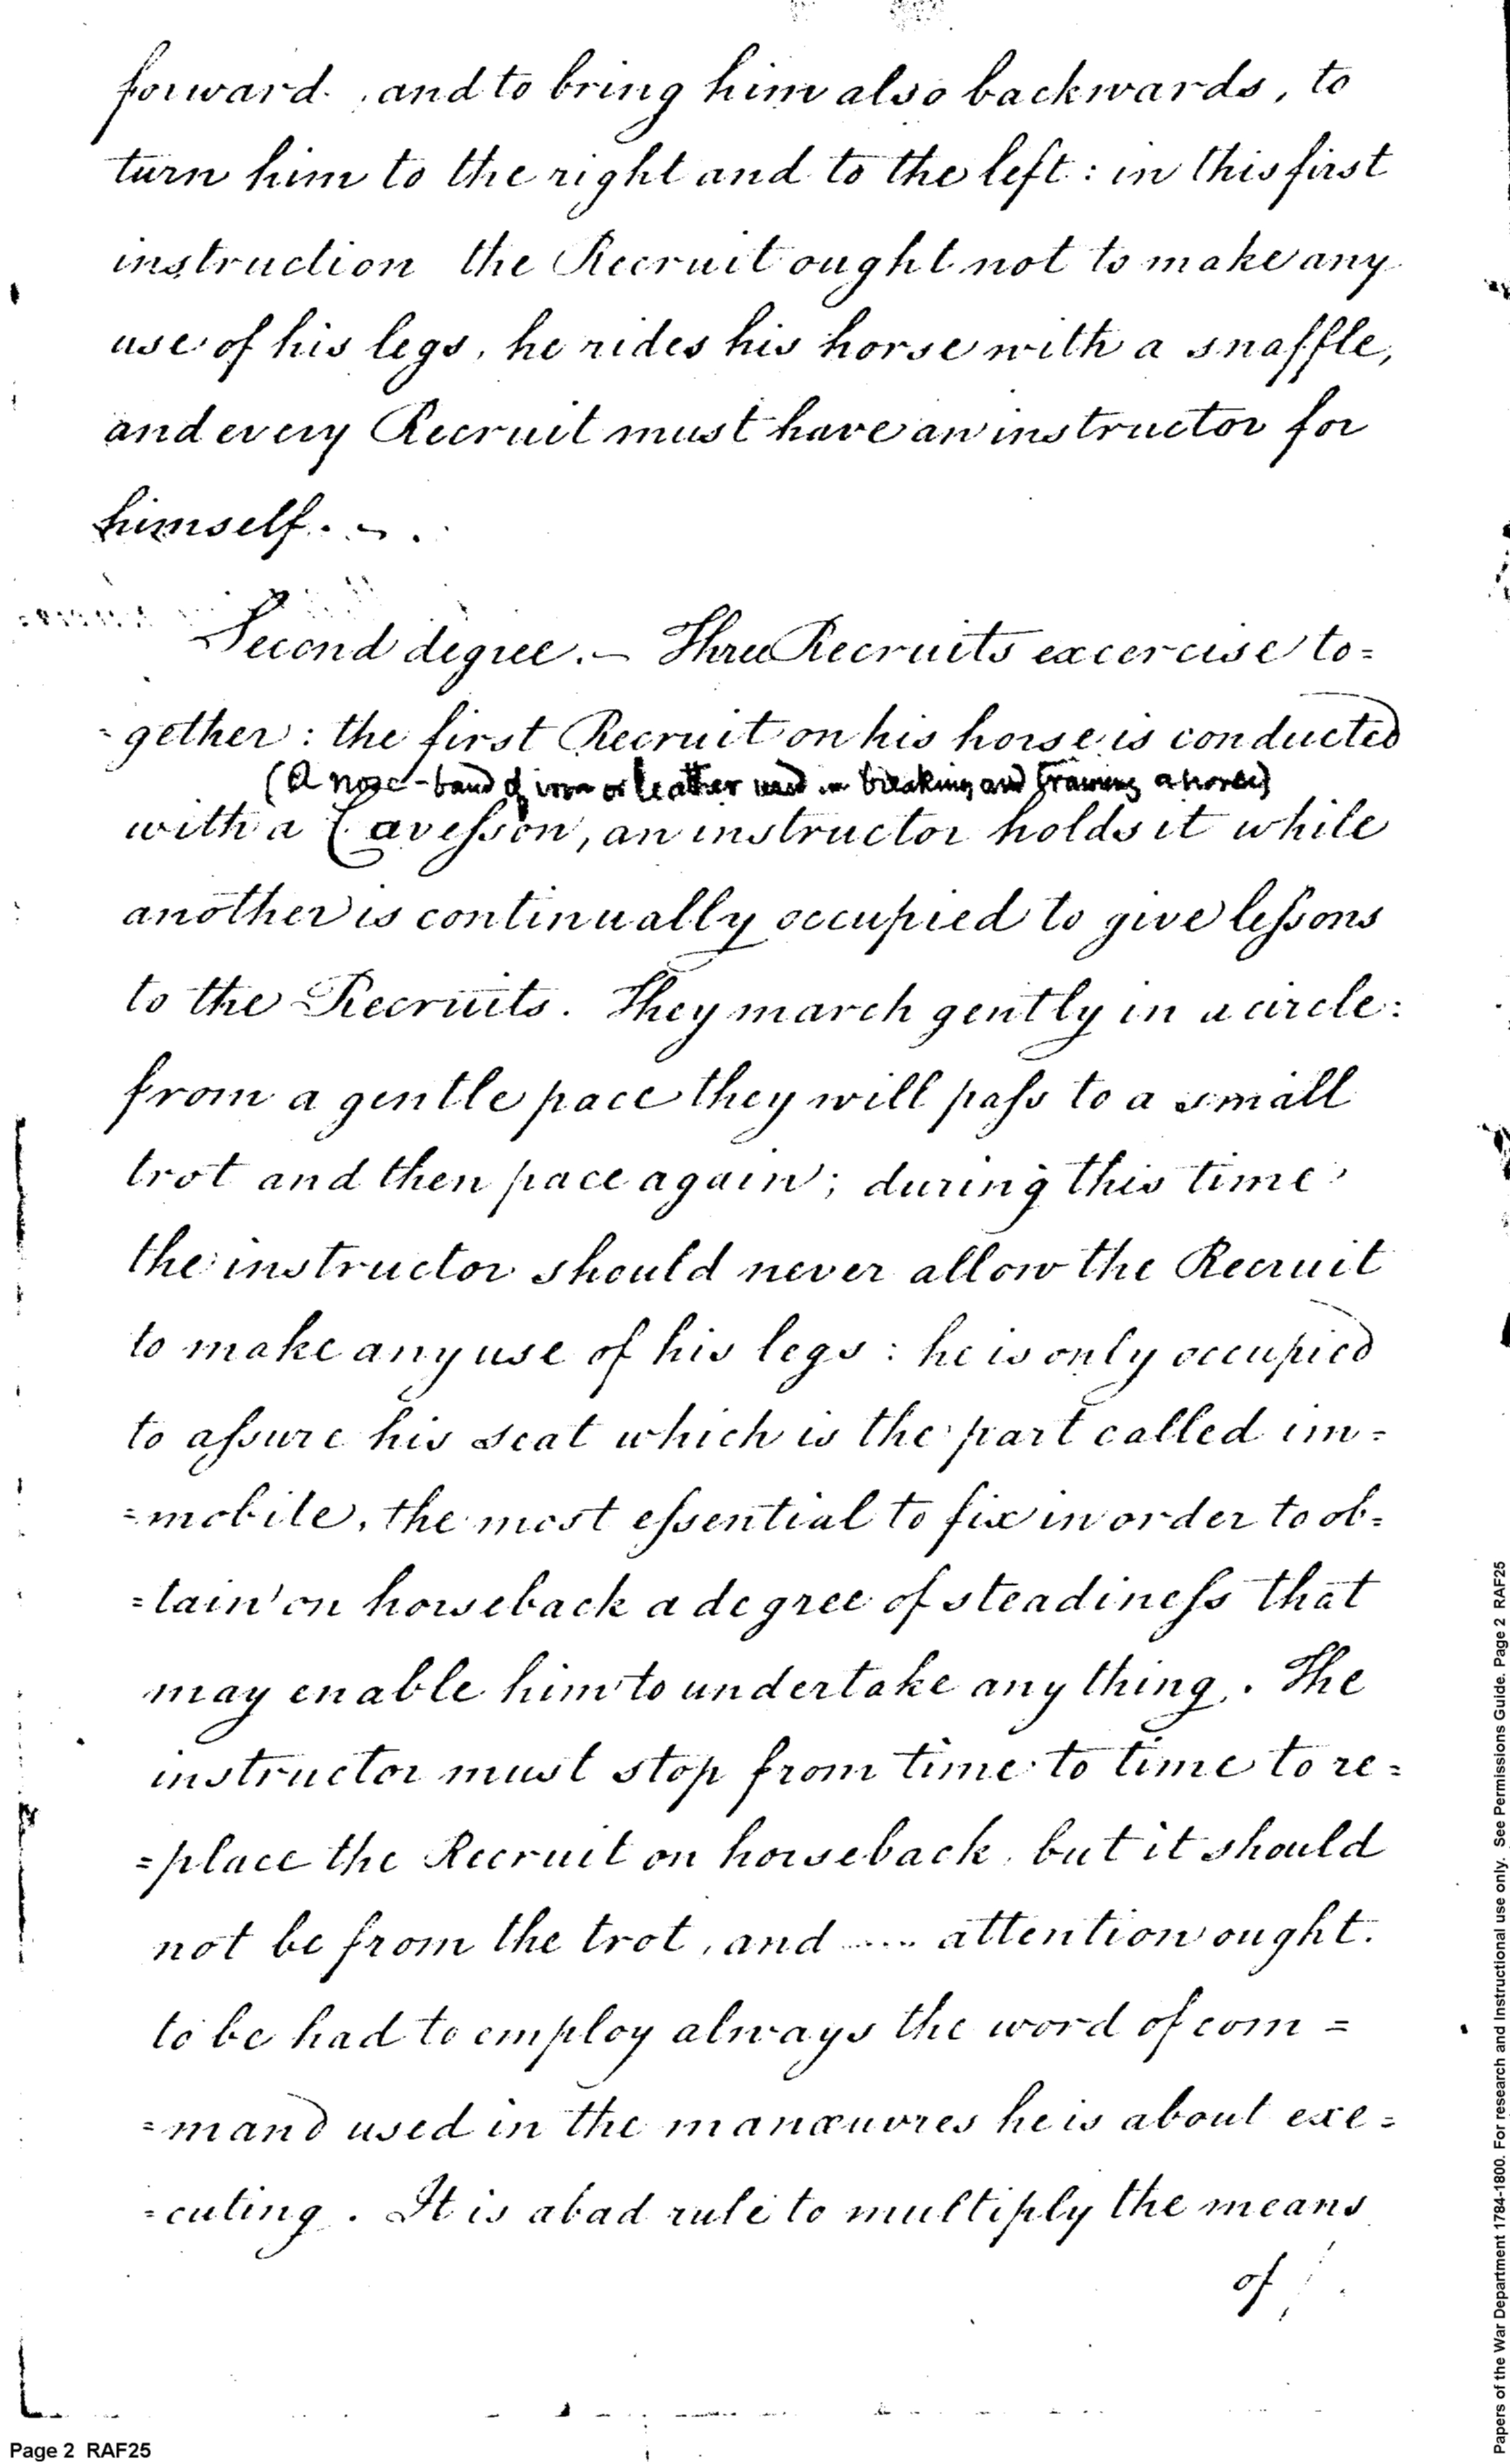 forward, and to bring him also backwards, to
turn him to the right and to the left: in this first
instruction the Recruit ought not to make any
use of his legs, he rides his horse with a snaffle,
and every Recruit must have an instructor for
himself. ~ .
Second degree. — Three Recruits excercise to=
=gether: the first Recruit on his horse is conducted
(A nose-band of iron or leather used in breaking and training a horse)
with a Cavesson, an instructor holds it while
another is continually occupied to give lessons
to the Recruits. They march gently in a circle:
from a gentle pace they will pass to a small
trot and then pace again; during this time
the instructor should never allow the Recruit
to make any use of his legs: he is only occupied
to assure his seat which is the part called im=
=mobile, the most essential to fix in order to ob=
=tain on horseback a degree of steadiness that
may enable him to undertake any thing. The
instructor must stop from time to time to re=
=place the Recruit on horseback, but it should
not be from the trot, and ..... attention ought
to be had to employ always the word of com=
=mand used in the manœuvres he is about exe=
=cuting. It is a bad rule to multiply the means
of
Page 2 RAF25
Papers of the War Department 1784-1800. For research and Instructional use only. See Permissions Guide. Page 2 RAF25